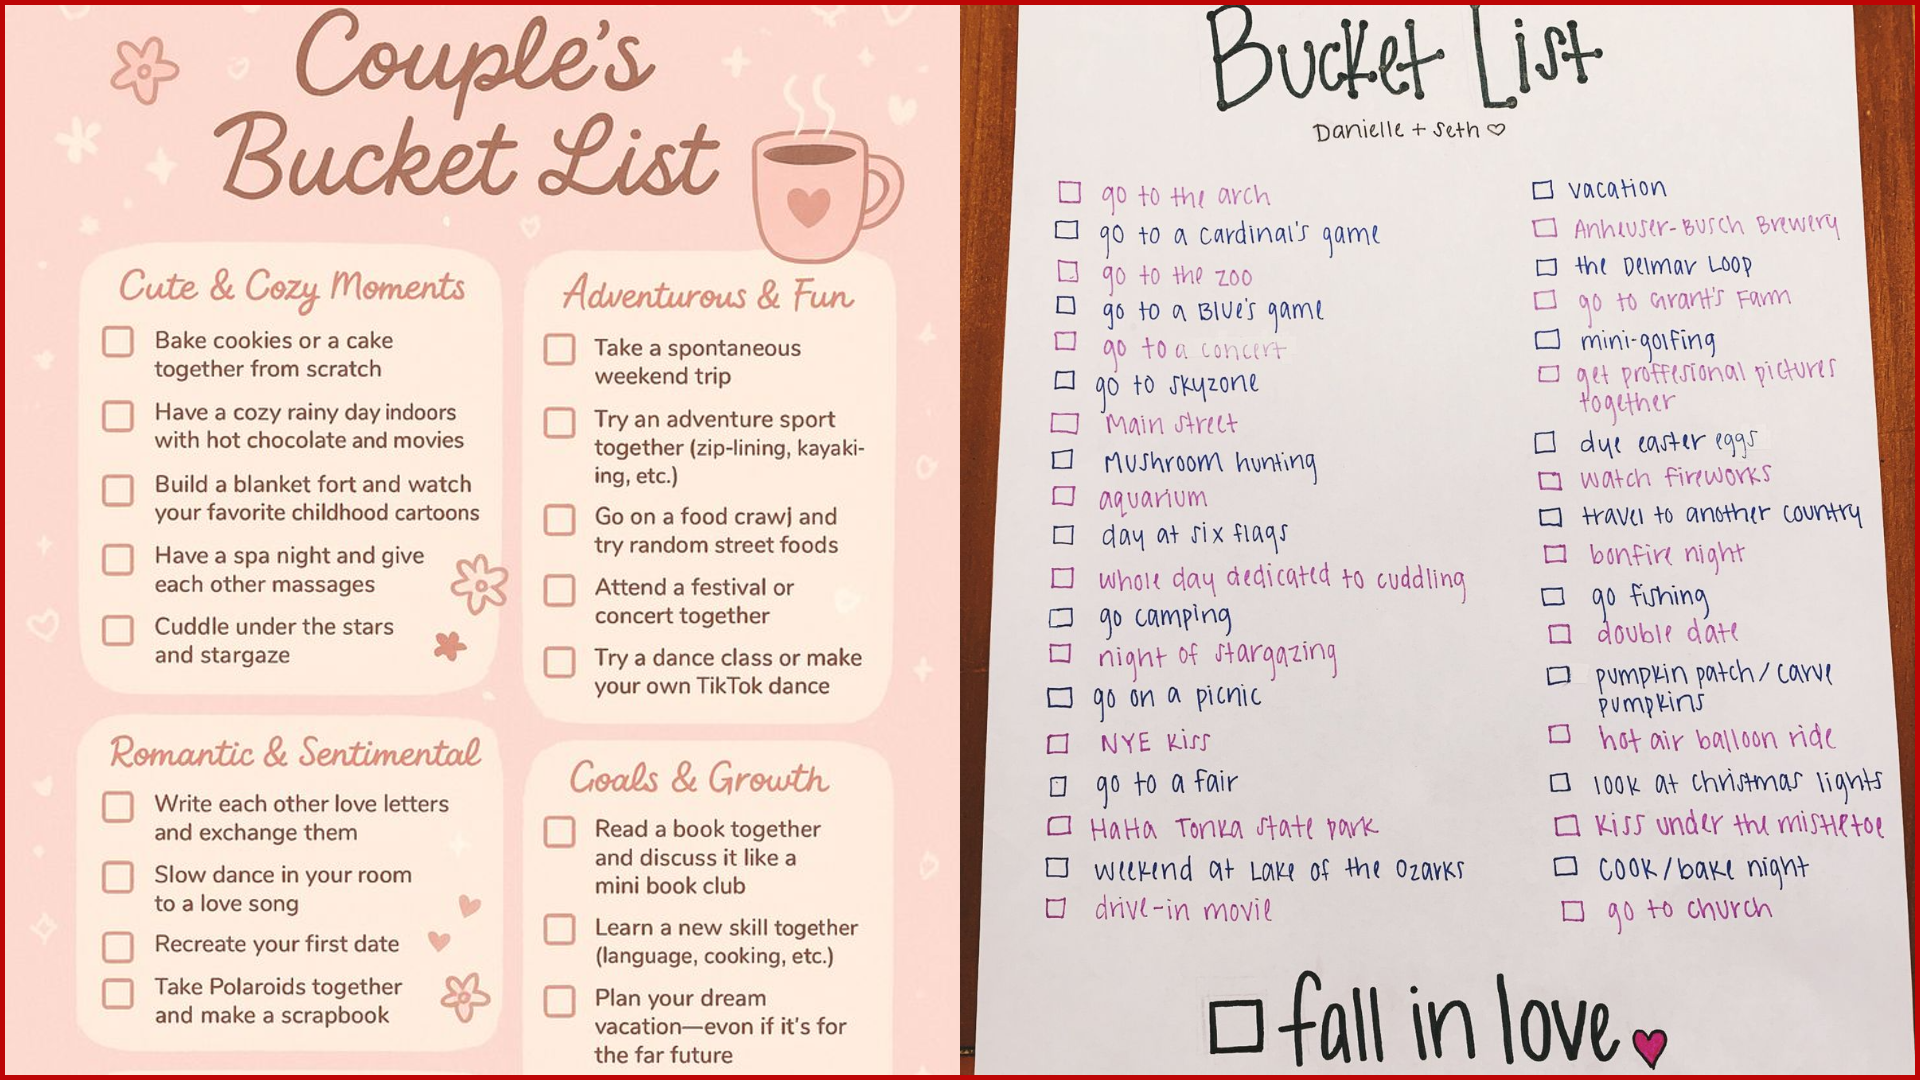 Couple's
Bucket List
Cute & Cozy Moments
Bake cookies or a cake
together from scratch
Have a cozy rainy day indoors
with hot chocolate and movies
Build a blanket fort and watch
your favorite childhood cartoons
Have a spa night and give
each other massages
Cuddle under the stars
and stargaze
Romantic & Sentimental
Write each other love letters
and exchange them
Slow dance in your room
to a love song
Recreate your first date
Take Polaroids together
and make a scrapbook
Adventurous & Fun
Take a spontaneous
weekend trip
Try an adventure sport
together (zip-lining, kayaki-
ing, etc.)
Go on a food crawj and
try random street foods
Attend a festival or
concert together
Try a dance class or make
your own TikTok dance
Goals & Growth
Read a book together
and discuss it like a
mini book club
Learn a new skill together
(language, cooking, etc.)
Plan your dream
vacation—evon if it's for
the far future
Bucket List
Danielle + Seth ♡
go to the arch
go to a cardinal's game
go to the zoo
go to a Blue's game
go to a concert
go to skyzone
Main street
Mushroom hunting
aquarium
day at six flags
whole day dedicated to cuddling
go camping
night of stargazing
go on a picnic
NYE kiss
go to a fair
HaHa Tonka state park
weekend at Lake of the Ozarks
drive-in movie
vacation
Anheuser-Busch Brewery
the Delmar Loop
go to Grant's Farm
mini-golfing
get proffesional pictures
together
dye easter eggs
watch fireworks
travel to another country
bonfire night
go fishing
double date
pumpkin patch/carve
pumpkins
hot air balloon ride
look at christmas lights
kiss under the mistletoe
cook/bake night
go to church
fall in love